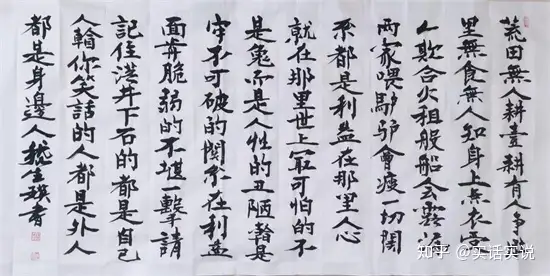 荒田無人耕壹耕有人争
里無食無人知身上無衣
人欺合火租般船会
两家喂馿驴會瘦一切関
系都是利益在那里人心
就在那里世上冣可怕的不
是鬼而是人性的丑陋看是
牢不可破的関系在利益
面前脆弱的不堪一擊請
記住洪井下石的都是自己
人輪你笑話的人都是外人
都是身邊人
知乎 @实话实说